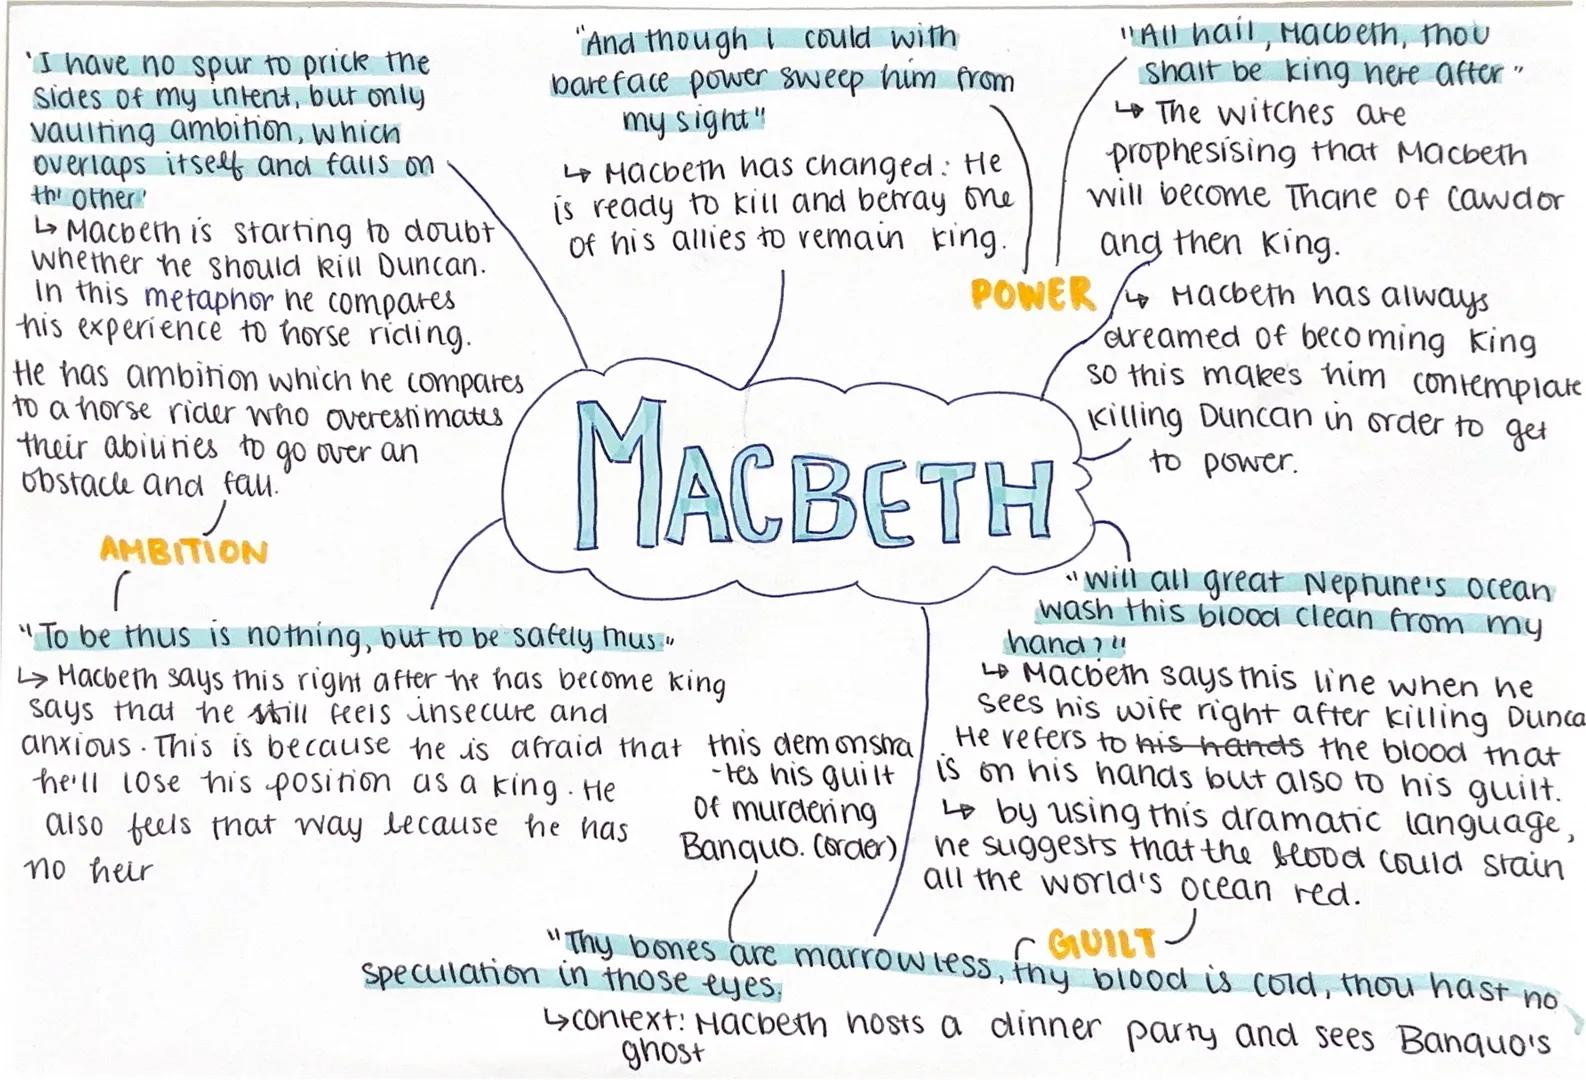 'I have no spur to prick the
sides of my intent, but only
vaulting ambition, which
overlaps itself and falls on
th' other'
↳ Macbeth is starting to doubt
whether he should kill Duncan.
In this metaphor he compares
his experience to horse riding.
He has ambition which he compares
to a horse rider who overestimates
their abilities to go over an
obstacle and fall.
AMBITION
"And though i could with
bareface power sweep him from
my sight"
↳ Macbeth has changed: He
is ready to kill and betray one
of his allies to remain king.
"All hail, Macbeth, thou
shalt be king here after"
↳ The witches are
prophesising that Macbeth
will become Thane of Cawdor
and then King.
POWER
↳ Macbeth has always
dreamed of becoming King
so this makes him contemplate
killing Duncan in order to get
to power.
MACBETH
"To be thus is nothing, but to be safely thus."
↳ Macbeth says this right after he has become king
says that he still feels insecure and
anxious. This is because he is afraid that
he'll lose his position as a king. He
also feels that way because he has
no heir
"Will all great Neptune's ocean
wash this blood clean from my
hand?"
↳ Macbeth says this line when he
sees his wife right after killing Dunca
He refers to his hands the blood that
is on his hands but also to his guilt.
↳ by using this dramatic language,
he suggests that the blood could stain
all the world's ocean red.
GUILT
this demonstra
-tes his guilt
of murdering
Banquo. (order)
"Thy bones are marrowless, thy blood is cold, thou hast no
speculation in those eyes.
↳ context: Macbeth hosts a dinner party and sees Banquo's
ghost